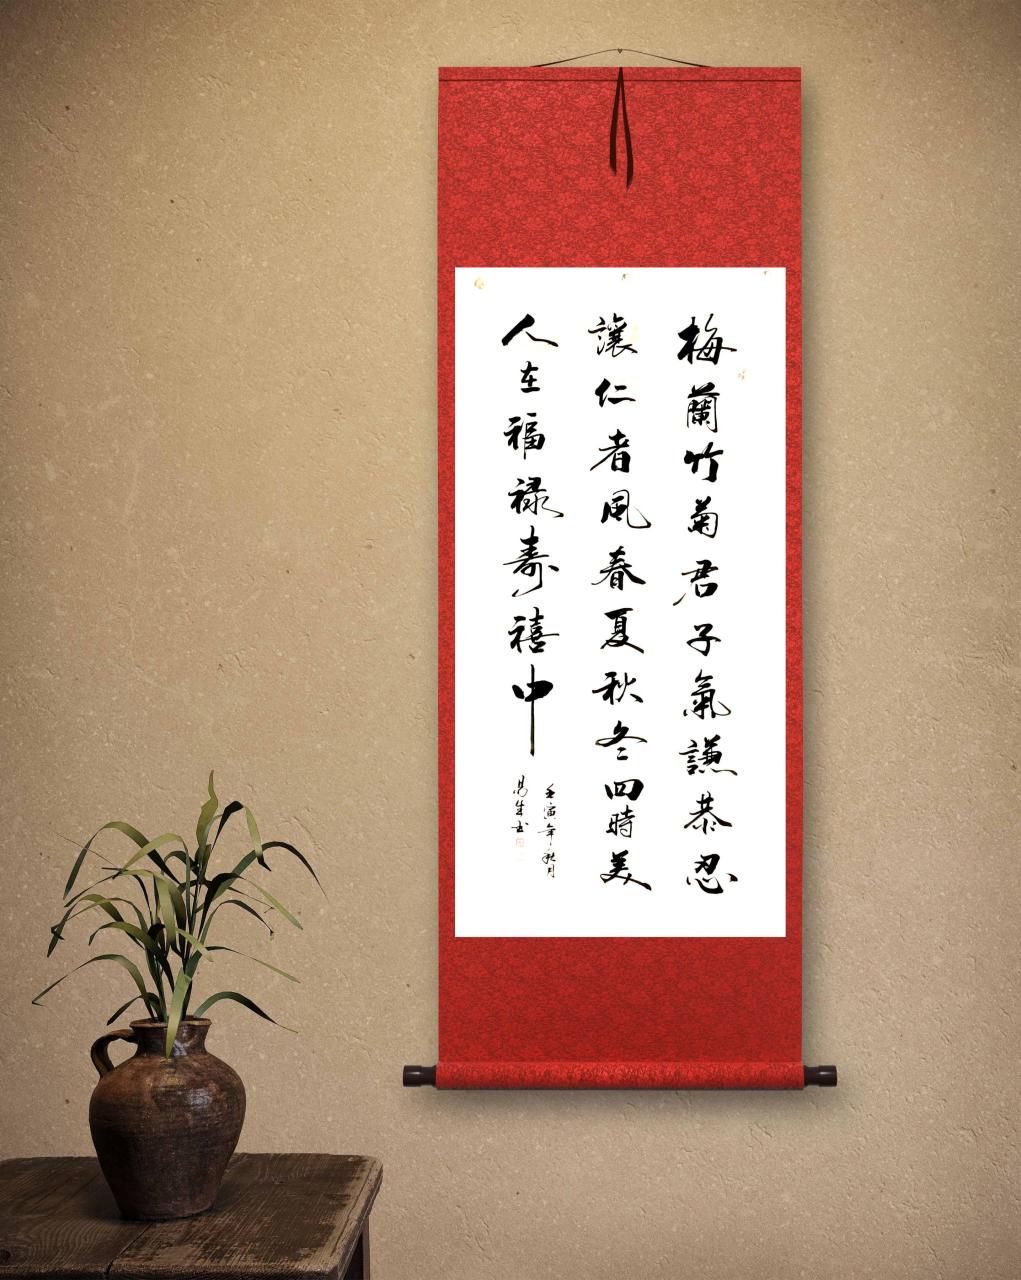 梅蘭竹菊君子氣謙恭忍
讓仁者風春夏秋冬四時美
人在福禄壽禧中
壬寅年秋月
易生书